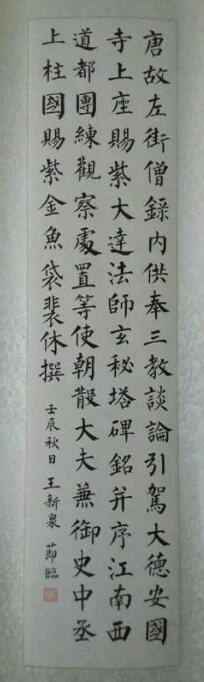 唐故左街僧録内供奉三教談論引駕大德安國
寺上座賜紫大達法師玄秘塔碑銘并序江南西
道都團練觀察處置等使朝散大夫兼御史中丞
上柱國賜紫金魚袋裴休撰
壬辰秋日王新泉節臨